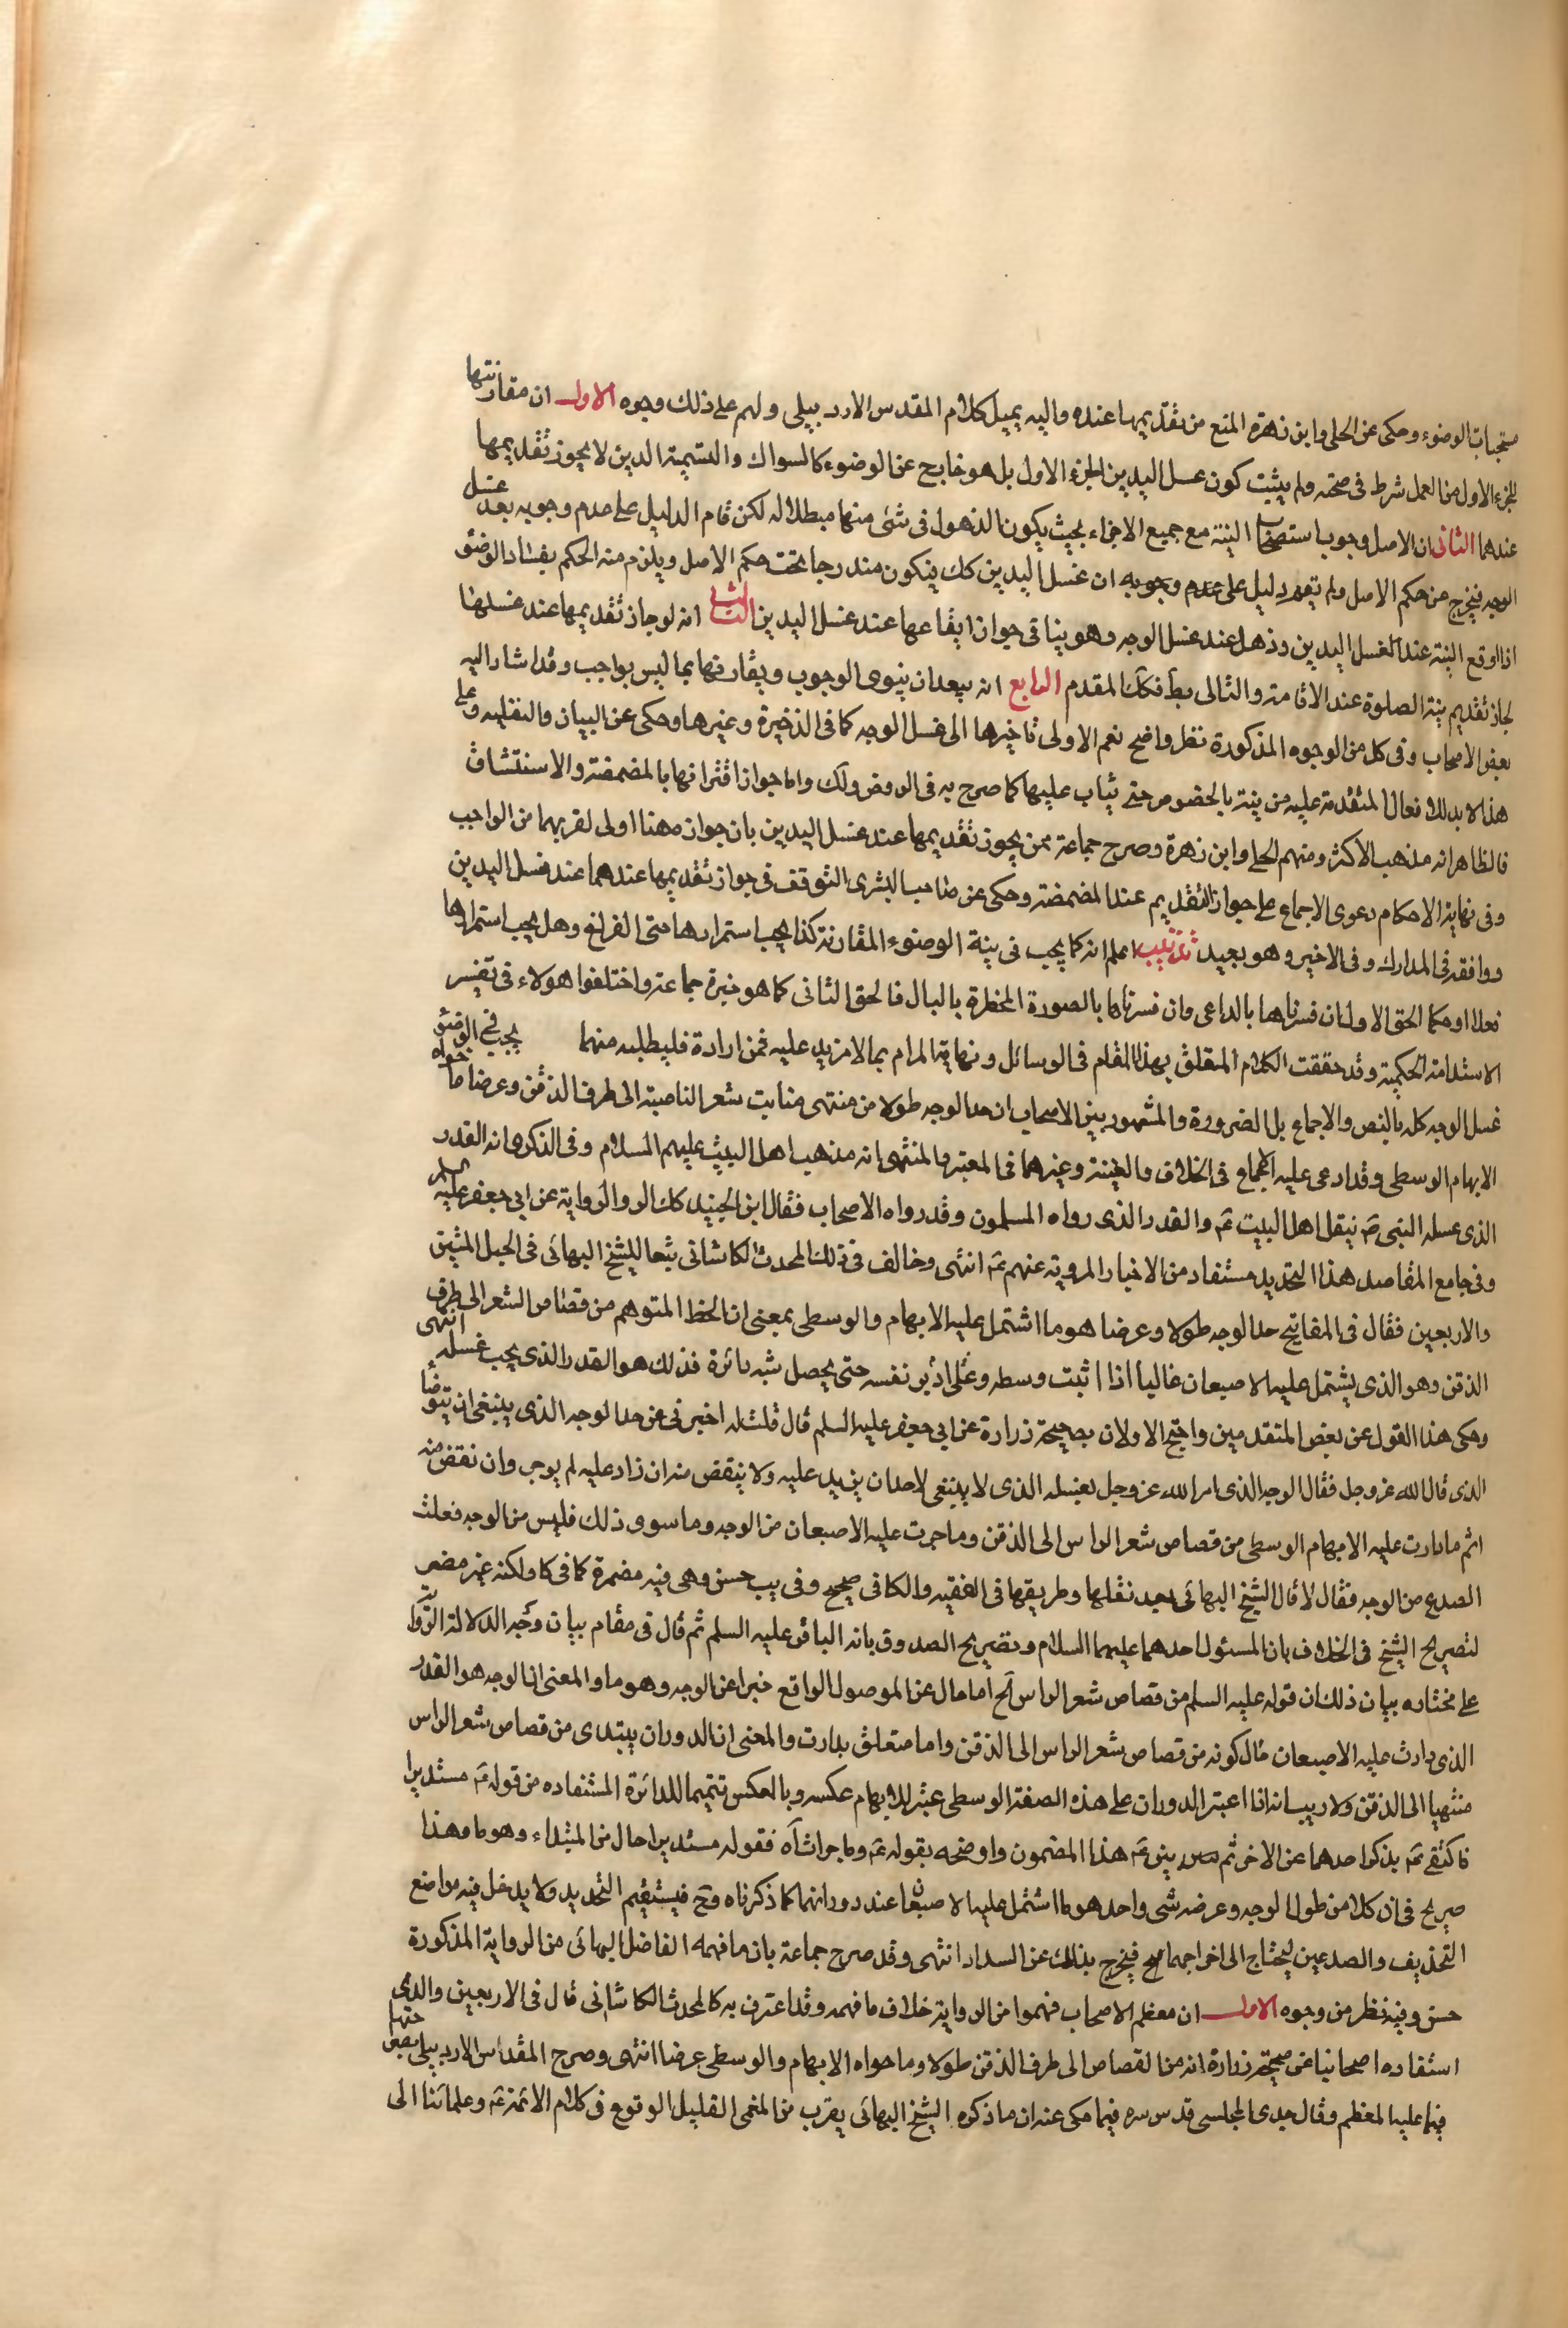 مستحبات الوضوء وحكى عن الحلى وابن زهرة المنع من تقديمها عنده واليه يميل كلام المقدس الاردبيلى ولهم على ذلك وجوه الاول ان مقارنتها
للجزء الاول من العمل شرط فى صحته ولم يثبت كون غسل اليدين الجزء الاول بل هو خارج عن الوضوء كالسواك والتسمية الذين لا يجوز تقديمها
عندهما الثانى ان الاصل وجوب استصحاب النية مع جميع الاجزاء بحيث يكون الذهول فى شئ منها مبطلا له لكن قام الدليل على عدم وجوبه بعد غسل
الوجه فيخرج من حكم الاصل ولم يقم دليل على عدم وجوبه ان غسل اليدين كك فيكون مندرجا تحت حكم الاصل ويلزم منه الحكم بفساد الوضوء
اذا اوقع النية عند الغسل اليدين وذهل عند غسل الوجه وهو ينافى جواز ايقاعها عند غسل اليدين الثالث انه لو جاز تقديمها عند غسلهما
لجاز تقديم نية الصلوة عند الاقامة والتالى بط فكك المقدم الرابع انه يبعد ان ينوى الوجوب ويقارنها بما ليس بواجب وقد اشار اليه
بعض الاصحاب وفى كل من الوجوه المذكورة نظر واضح نعم الاولى تاخيرها الى غسل الوجه كما فى الذخيرة وغيرها وحكى عن البيان والنفلية وعلى
هذا لا بد للافعال المتقدمة عليه من نية بالخصوص حتى يثاب عليها كما صرح به فى الروض ولك واما جواز اقترانها بالمضمضة والاستنشاق
فالظاهر انه مذهب الاكثر ومنهم الحلى وابن زهرة وصرح جماعة ممن يجوز تقديمها عند غسل اليدين بان جوازه هنا اولى لقربهما من الواجب
وفى نهاية الاحكام دعوى الاجماع على جواز التقديم عند المضمضة وحكى عن صاحب البشرى التوقف فى جواز تقديمها عندهما عند غسل اليدين
ووافقه فى المدارك وفى الاخير وهو بعيد تذنيب اعلم انه كما يجب فى نية الوضوء المقارنة كذا يجب استمرارها حتى الفراغ وهل يجب استمرارها
فعلا او حكما الحق الاول ان فسرناها بالداعى وان فسرناها بالصورة المخطرة بالبال فالحق الثانى كما هو خيرة جماعة واختلفوا هولاء فى تفسير
الاستدامة الحكمية وقد حققت الكلام المتعلق بهذا المقام فى الوسائل ونهاية المرام بما لا مزيد عليه فمن ارادة فليطلبه منهما يجب فى الوضوء
غسل الوجه كله بالنص والاجماع بل الضرورة والمشهور بين الاصحاب ان حد الوجه طولا من منتهى منابت شعر الناصية الى طرف الذقن وعرضا ما حواه
الابهام الوسطى وقد ادعى عليه الاجماع فى الخلاف والغنية وغيرهما فى المعتبر والمنتهى انه مذهب اهل البيت عليهم السلام وفى الذكرى انه القدر
الذى غسله النبى ص بنقل اهل البيت ع والقدر الذى رواه المسلمون وقد رواه الاصحاب فقال ابن الجنيد كك الر والرواية عن ابى جعفر عليه السلم
وفى جامع المقاصد هذا التحديد مستفاد من الاخبار المروية عنهم ع انتهى وخالف فى ذلك المحدث الكاشانى تبعا للشيخ البهائى فى الحبل المتين
والاربعين فقال فى المفاتيح حد الوجه طولا وعرضا هو ما اشتمل عليه الابهام والوسطى بمعنى ان الخط المتوهم من قصاص الشعر الى طرف
الذقن وهو الذى يشتمل عليه الاصبعان غالبا اذا اثبت وسطه وادير على نفسه حتى يحصل شبه دائرة فذلك هو القدر الذى يجب غسله انتهى
وحكى هذا القول عن بعض المتقدمين واحتج الاولان بصحيحة زرارة عن ابى جعفر عليه السلم قال قلت له اخبرنى عن حد الوجه الذى ينبغى ان يتوضأ
الذى قال الله عز وجل فقال الوجه الذى امر الله عز وجل بغسله الذى لا ينبغى لاحد ان يزيد عليه ولا ينقص منه ان زاد عليه لم يوجر وان نقص منه
اثم ما دارت عليه الابهام الوسطى من قصاص شعر الراس الى الذقن وما جرت عليه الاصبعان من الوجه وما سوى ذلك فليس من الوجه فقلت
الصدغ من الوجه فقال لا قال الشيخ البهائى بعد نقلها وطريقها فى الفقيه والكافى صحيح وفى يب حسن وهى فيه مضمرة كما فى كا ولكنه غير مضر
لتصريح الشيخ فى الخلاف بان المسئول احدهما عليهما السلام وتصريح الصدوق بانه الباقر عليه السلم ثم قال فى مقام بيان وجه الدلالة الرواية
على مختاره بيان ذلك ان قوله عليه السلم من قصاص شعر الراس الخ اما حال عن الموصول الواقع خبرا عن الوجه وهو ما والمعنى ان الوجه هو القدر
الذى دارت عليه الاصبعان حال كونه من قصاص شعر الراس الى الذقن واما متعلق بدارت والمعنى ان الدوران يبتدى من قصاص شعر الراس
منتهيا الى الذقن ولا ريب انه اذا اعتبر الدوران على هذه الصفة الوسطى عتبر للابهام عكسه وبالعكس تتميما للدائرة المستفاده من قوله ع مستديرا
فاكتفى ع بذكر احدهما عن الاخر ثم بين ع هذا المضمون واوضحه بقوله ع وما جرات آه فقوله مستديرا حال من المبتداء وهو ما وهذا
صريح فى ان كلا من طول الوجه وعرضه شى واحد هو ما اشتمل عليه الاصبعان عند دورانهما كما ذكرناه وح فيستقيم التحديد ولا يدخل فيه مواضع
التحذيف والصدغين ليحتاج الى اخراجهما فيخرج بذلك عن السداد انتهى وقد صرح جماعة بان ما فهمه الفاضل البهائى من الرواية المذكورة
حسن وفيه نظر من وجوه الاول ان معظم الاصحاب فهموا من الرواية خلاف ما فهمه وقد اعترف به كالمحدث الكاشانى قال فى الاربعين والذى
استفاده اصحابنا عن صحيحة زرارة انه من القصاص الى طرف الذقن طولا وما حواه الابهام والوسطى عرضا انتهى وصرح المقداس الاردبيلى
فيما عليه المعظم وقال جدى المجلسى قدس سره فيما حكى عنه ان ما ذكره الشيخ البهائى يقرب من المعمى القليل الوقوع فى كلام الائمة ع وعلمائنا الى